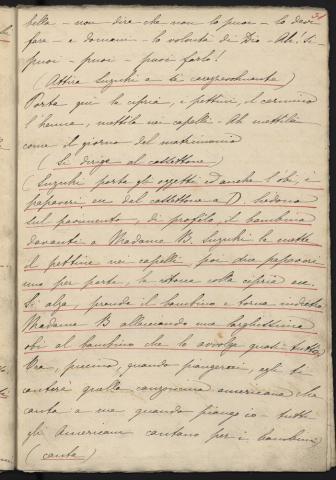 bella - non dire che non lo puoi - lo devi
fare - e domani - la volontà di Dio - Ah! si
puoi - puoi - puoi farlo!
(Attira Suzuki a se carezzevolmente)
Porta qui la cipria, e pettini, il carminio
l'henna, mettila nei capelli - Ah mettila
come il giorno del matrimonio
(Si dirige al cassettone)
(Suzuki porta gli oggetti ed anche l'obi, i
papaveri, ecc. dal cassettone a D. Siedono
sul pavimento, di profilo, il bambino
davanti a Madame B. Suzuki le mette
il pettine nei capelli, poi due papaveri
uno per parte, la cipria ecc.
Si alza, prende il bambino e torna indietro
Madame B allacciando una larghissima
obi al bambino che lo avvolge quasi tutto)
Ora, piccino, quando piangerai, egli ti
canterà quella canzoncina americana che
canta a me quando piango io - tutti
gli Americani cantano per i bambini
(canta)